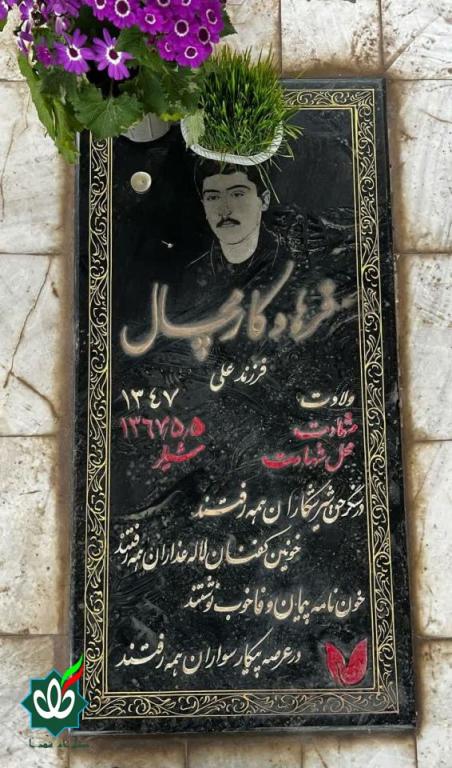 فرهاد کارمچال
فرزند علی
ولادت ۱۳۴۷
شهادت ۱۳۶۷٫۵٫۵
محل شهادت شیلر
در سنگر حق شیر شکاران همه رفتند
خونین کفنان لاله عذاران همه رفتند
خون نامه پیمان وفا خوب نوشتند
در عرصه پیکار سواران همه رفتند